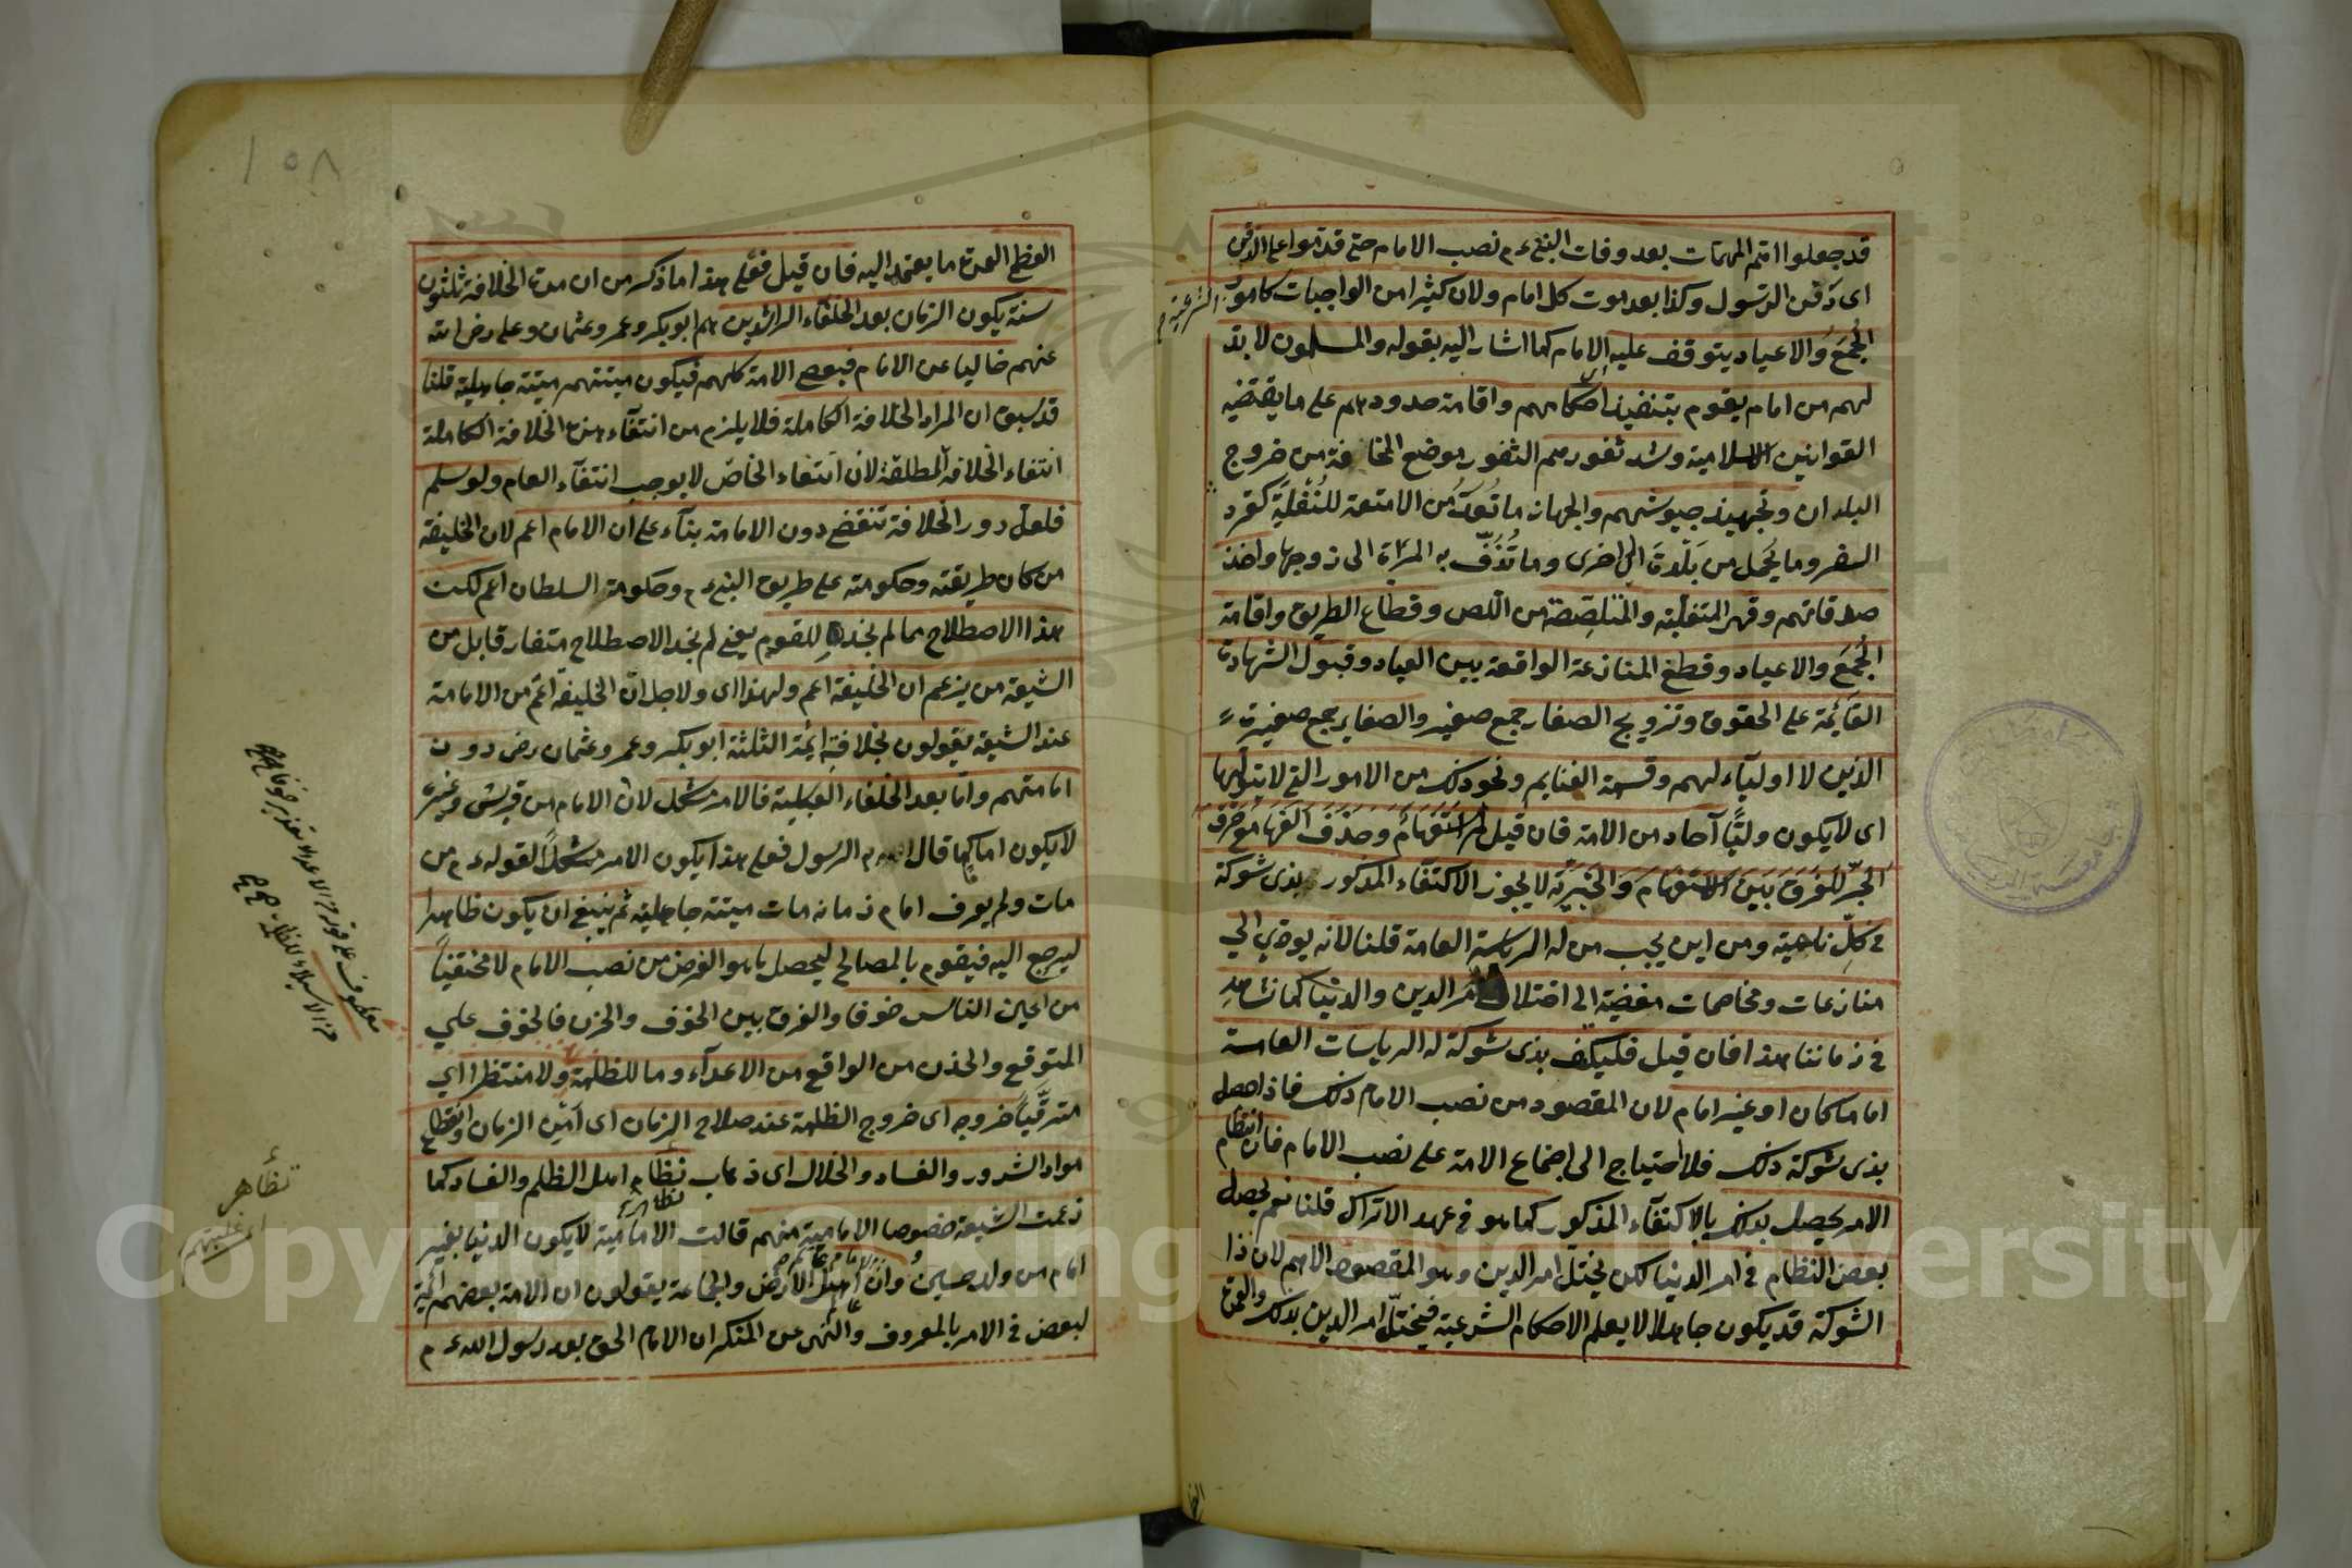 قد جعلوا اهتم المهمات بعد وفات النبى ءم نصب الامام حتى قدموا على الدفن
اى دفن الرسول وكذا بعد موت كل امام ولان كثيرا من الواجبات كامور الشرعية
الجمع والاعياد يتوقف عليه الامام كما اشار اليه بقوله والمسلمون لا بد
لهم من امام يقوم بتنفيذ احكامهم واقامة حدودهم على ما يقتضيه
القوانين الاسلامية وسد ثغورهم الثغور موضع المخافة من خروج
البلدان وتجهيز جيوشهم والجهاز ما تعد من الامتعة للنقلية كتفرد
السفر وما يحمل من بلدة الى اخرى وما تزف به المراة الى زوجها واخذ
صدقاتهم وقهر المتغلبة والمتلصصة من اللص وقطاع الطريق واقامة
الجمع والاعياد وقطع المنازعة الواقعة بين العباد وقبول الشهادة
القائمة على الحقوق وتزويج الصغار جمع صغير والصغاير جمع صغيرة
الذين لا اولياء لهم وقسمة الغنايم ونحو ذلك من الامور التى لا يتولها
اى لا يكون وليا آحاد من الامة فان قيل لم استفهام وحذف الفها مع حرف
الجر للفرق بين الاستفهام والخبرية لا يجوز الاكتفاء المذكور بذى شوكة
فى كل ناحية ومن اين يجب من له الرياسة العامة قلنا لانه يودي الي
منازعات ومخاصمات مفضية الى اختلال امر الدين والدنيا كما نشاهد
فى زماننا هذا فان قيل فليكتف بذى شوكة له الرياسات العامة
اماما كان او غير امام لان المقصود من نصب الامام ذلك فاذا حصل
بذى شوكة ذلك فلا احتياج الى اجماع الامة على نصب الامام فان انتظام
الامر يحصل بذلك بالاكتفاء المذكور كما هو فى عهد الاتراك قلنا نعم يحصل
بعض النظام فى امر الدنيا لكن يختل امر الدين وهو المقصوص الاهم لان ذا
الشوكة قد يكون جاهلا لا يعلم الاحكام الشرعية فيختل امر الدين بذلك والعمدة
١٥٨
العظمى العمدة ما يعتمد اليه فان قيل فعلى هذا اما ذكر من ان مدة الخلافة ثلثون
سنة يكون الزمان بعد الخلفاء الراشدين هم ابو بكر وعمر وعثمان وعلى رضى الله
عنهم خاليا عن الامام فيعصى الامة كلهم فيكون ميتتهم ميتة جاهلية قلنا
قد سبق ان المراد الخلافة الكاملة فلا يلزم من انتفاء هذه الخلافة الكاملة
انتفاء الخلافة المطلقة لان انتفاء الخاص لا يوجب انتفاء العام ولو سلم
فلعل دور الخلافة تنقضى دون الامامة بناء على ان الامام اعم لان الخليفة
من كان طريقته وحكومته على طريق النبى ءم وحكومة السلطان اعم لكن
هذا الاصطلاح مما لم نجده للقوم يعنى لم نجد الاصطلاح متفار قابل من
الشيعة من يزعم ان الخليفة اعم ولهذا اى ولاجل ان الخليفة اعم من الامامة
عند الشيعة يقولون بخلافة ائمة الثلثة ابو بكر وعمر وعثمان رض دون
امامتهم واما بعد الخلفاء العباسية فالامر مشكل لان الامام من قريش وغيره
لا يكون اماما كما قال الرسول فعلى هذا يكون الامر مشكلا لقوله ءم من
مات ولم يعرف امام زمانه مات ميتة جاهلية ثم ينبغى ان يكون ظاهرا
ليرجع اليه فيقوم بالمصالح ليحصل ما هو الغرض من نصب الامام لا مختفيا
من اعين الناس خوفا والفرق بين الخوف والحزن فالخوف علي
المتوقع والحذن من الواقع من الاعداء وما للظلمة ولا منتظرا اي
مترقبا خروجه اى خروج الظلمة عند صلاح الزمان اى امن الزمان وانقطاع
مواد الشرور والفساد والخلال اى ذهاب نظام اهل الظلم والفساد كما
زعمت الشيعة خصوصا الامامية منهم قالت الامامية لا يكون الدنيا بغير
امام من ولد حسين وان اهل الارض والجماعة يقولون ان الامة بعضهم ائمة
لبعض فى الامر بالمعروف والنهى عن المنكر ان الامام الحق بعد رسول الله ءم
تظاهر
Copyright © King Saud University